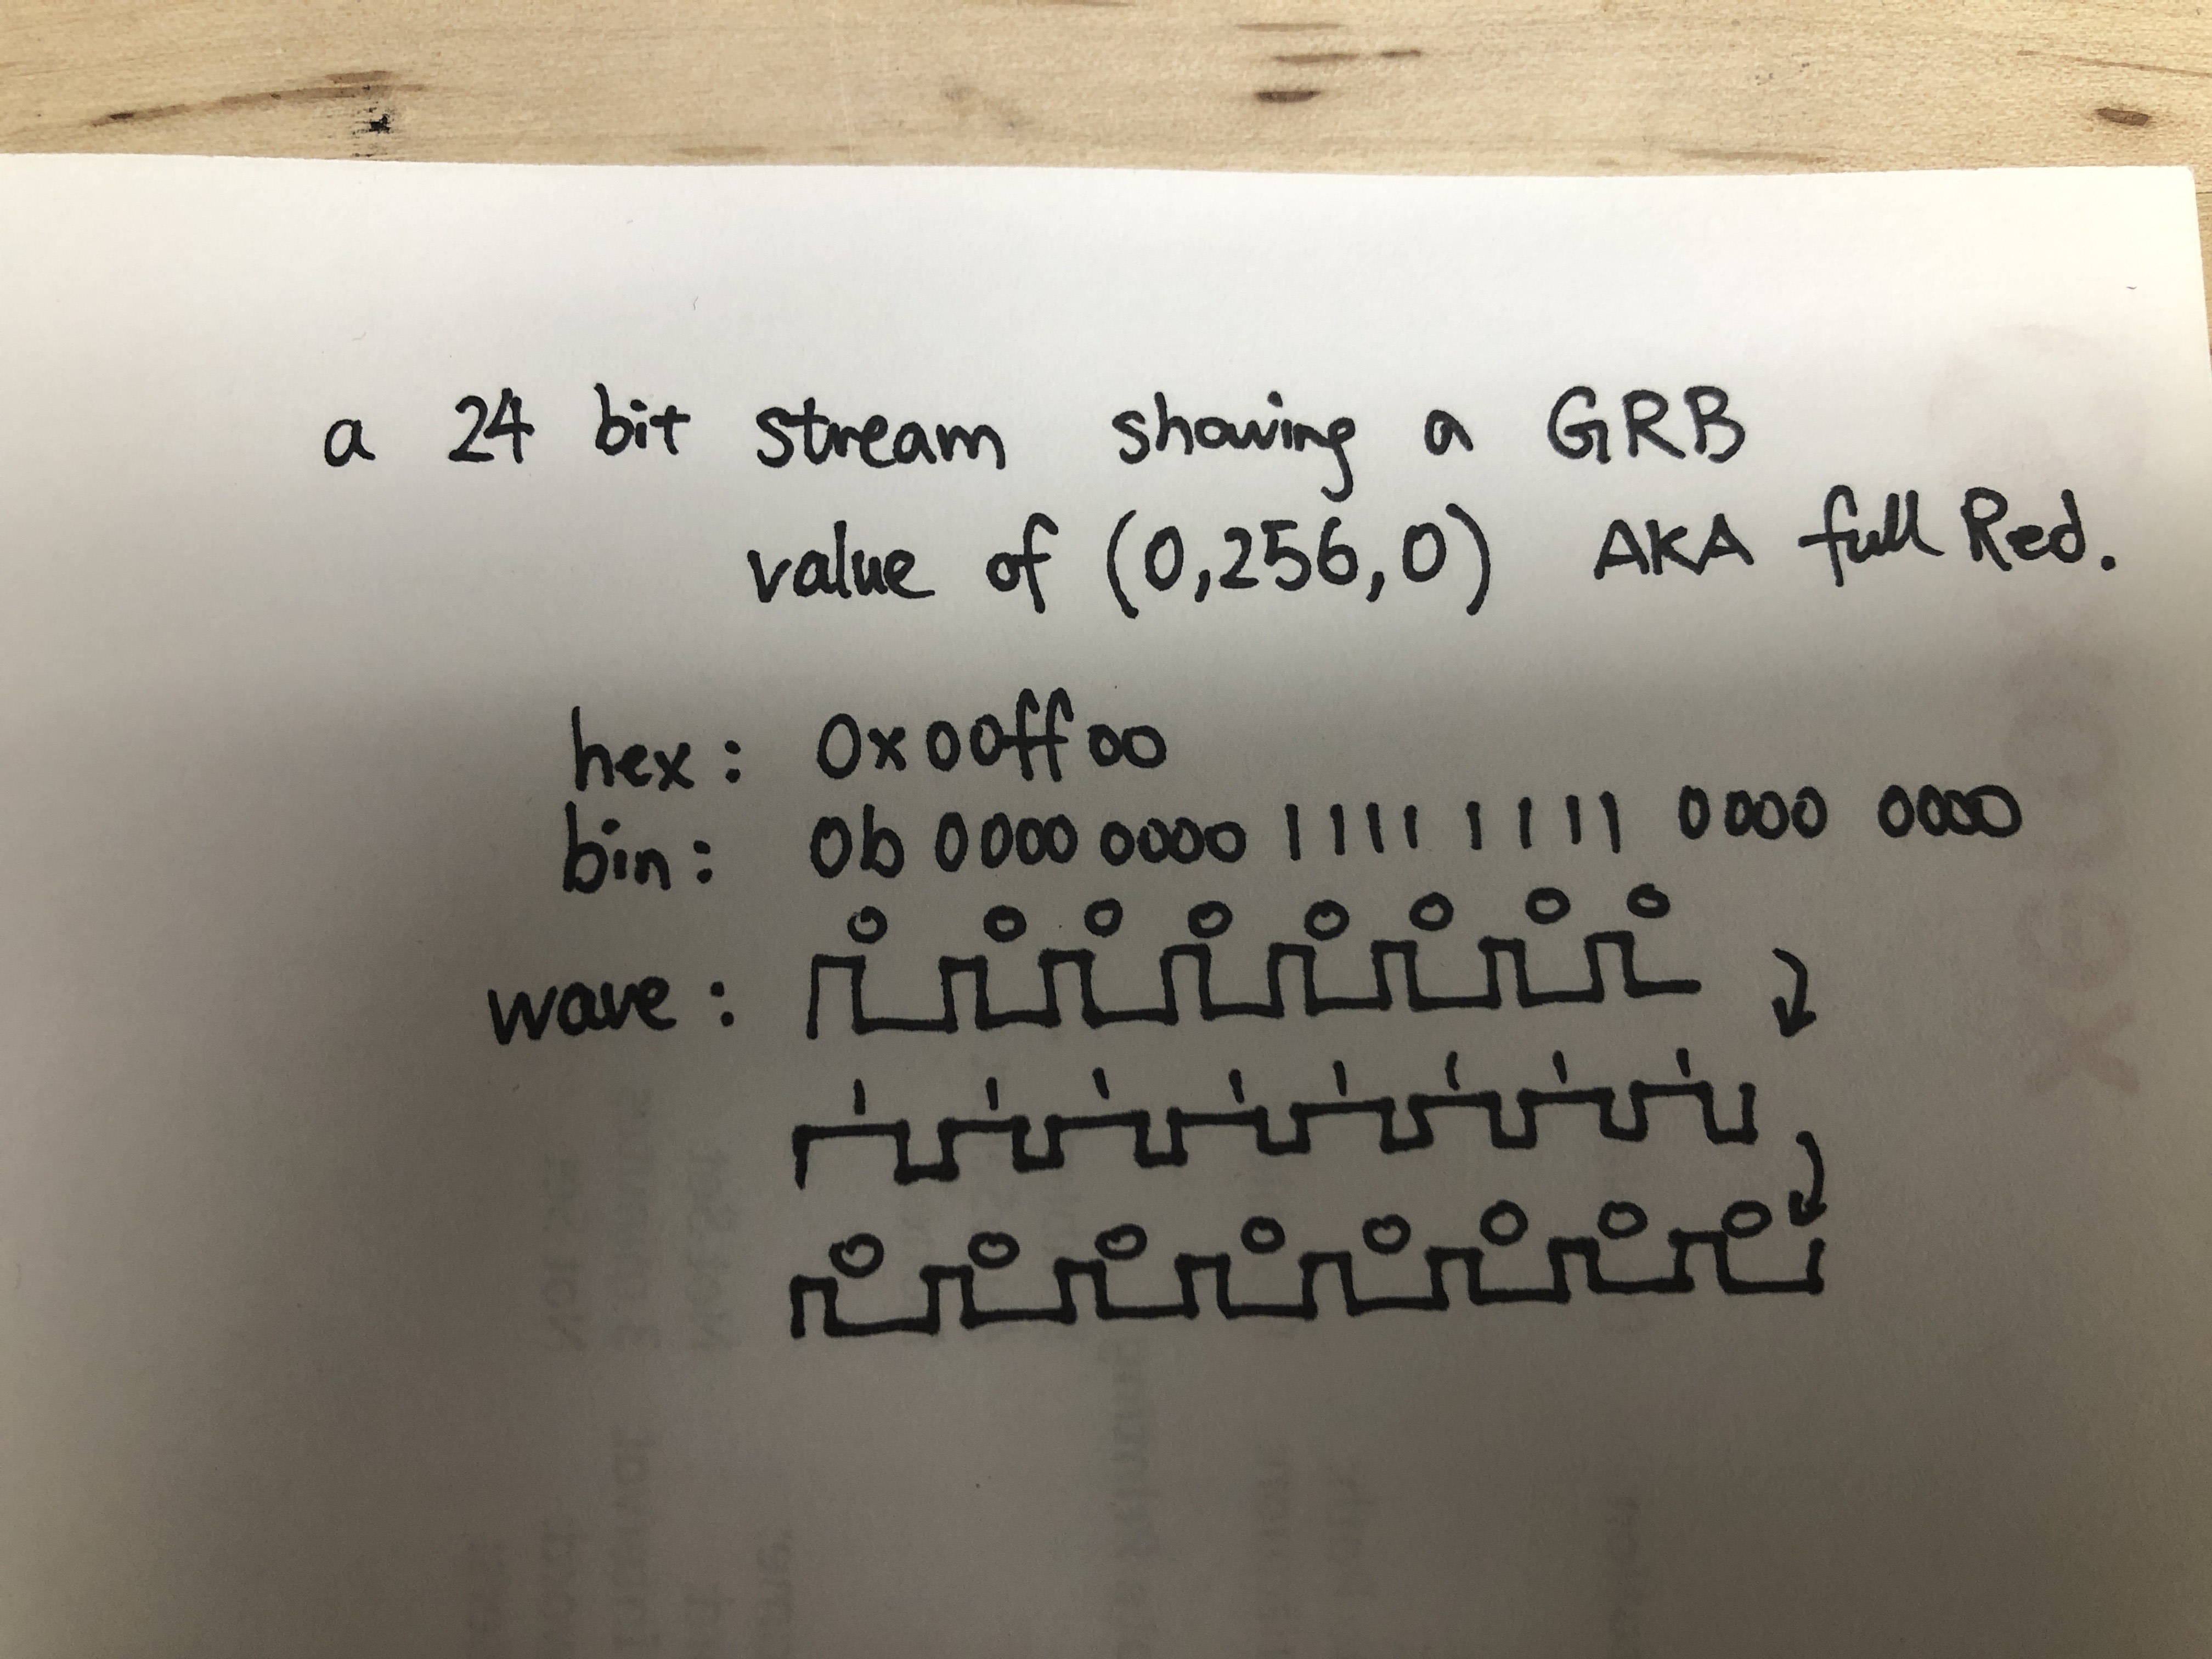 a 24 bit stream showing a GRB
value of (0,256,0) AKA full Red.
hex: 0x00ff00
bin: 0b 0000 0000 1111 1111 0000 0000
0 0 0 0 0 0 0 0
wave:
1 1 1 1 1 1 1 1
0 0 0 0 0 0 0 0